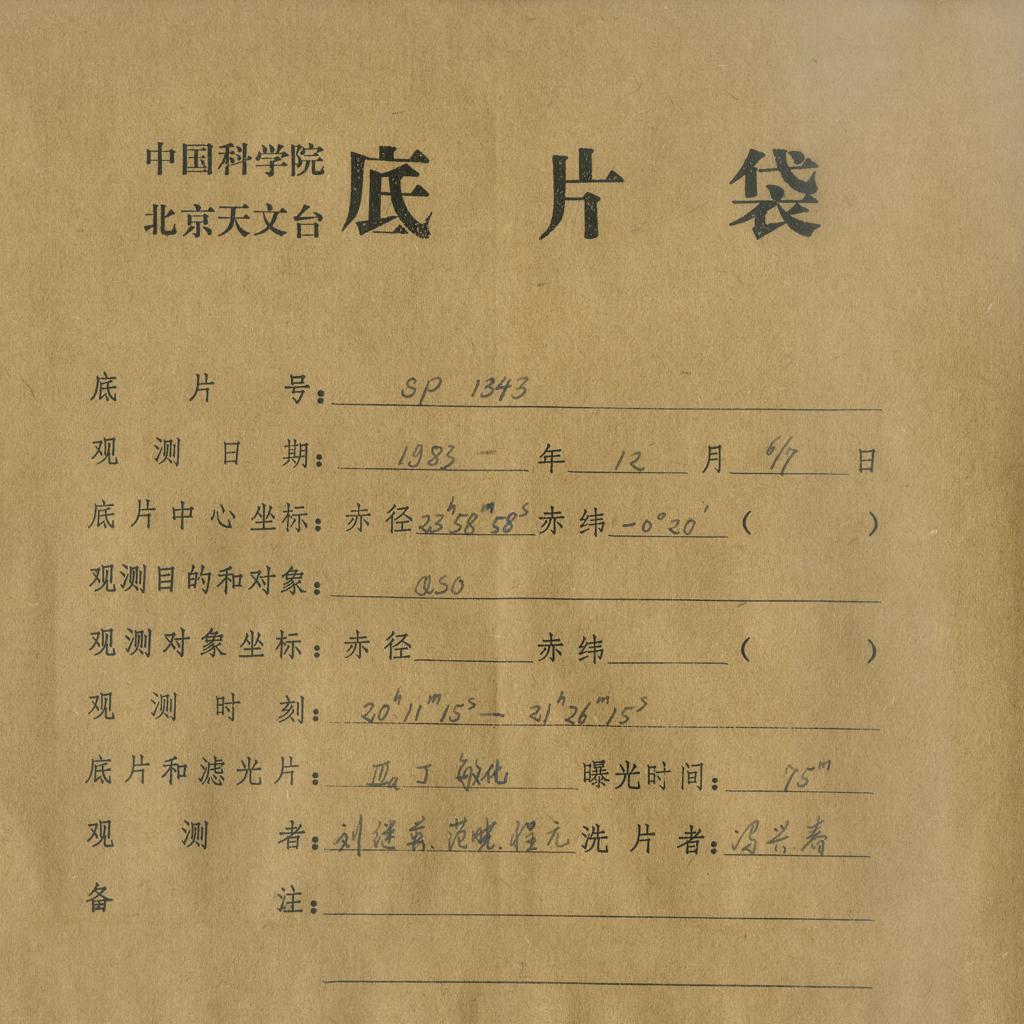 中国科学院
北京天文台
底片袋
底片号: SP 1343
观测日期: 1983年12月6/7日
底片中心坐标: 赤径23ʰ58ᵐ58ˢ赤纬-0°20′( )
观测目的和对象: QSO
观测对象坐标: 赤径 赤纬 ( )
观测时刻: 20ʰ11ᵐ15ˢ— 21ʰ26ᵐ15ˢ
底片和滤光片: Ⅲa J 敏化 曝光时间: 75ᵐ
观测者: 刘继英、范晓、程元 洗片者: 冯兴春
备注: